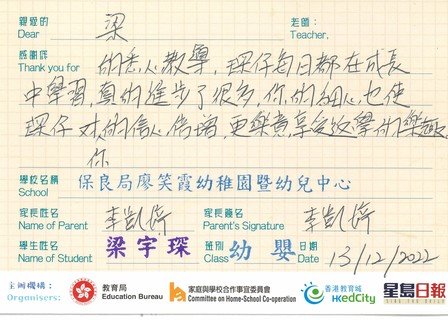 親愛的 梁 老師：
Dear Teacher,
感謝你
Thank you for 的悉心教導，琛仔每日都在成長
中學習，真的進步了很多，你的細心也使
琛仔對你的信心倍增，更樂意享受校學的樂趣
你
學校名稱
School 保良局廖笑霞幼稚園暨幼兒中心
家長姓名 家長簽名
Name of Parent 李凱琦 Parent's Signature 李凱琦
學生姓名 班別 日期
Name of Student 梁宇琛 Class 幼嬰 Date 13/12/2022
主辦機構：
Organisers:
教育局
Education Bureau
家庭與學校合作事宜委員會
Committee on Home-School Co-operation
香港教育城
HKedCity
星島日報
SING TAO DAILY